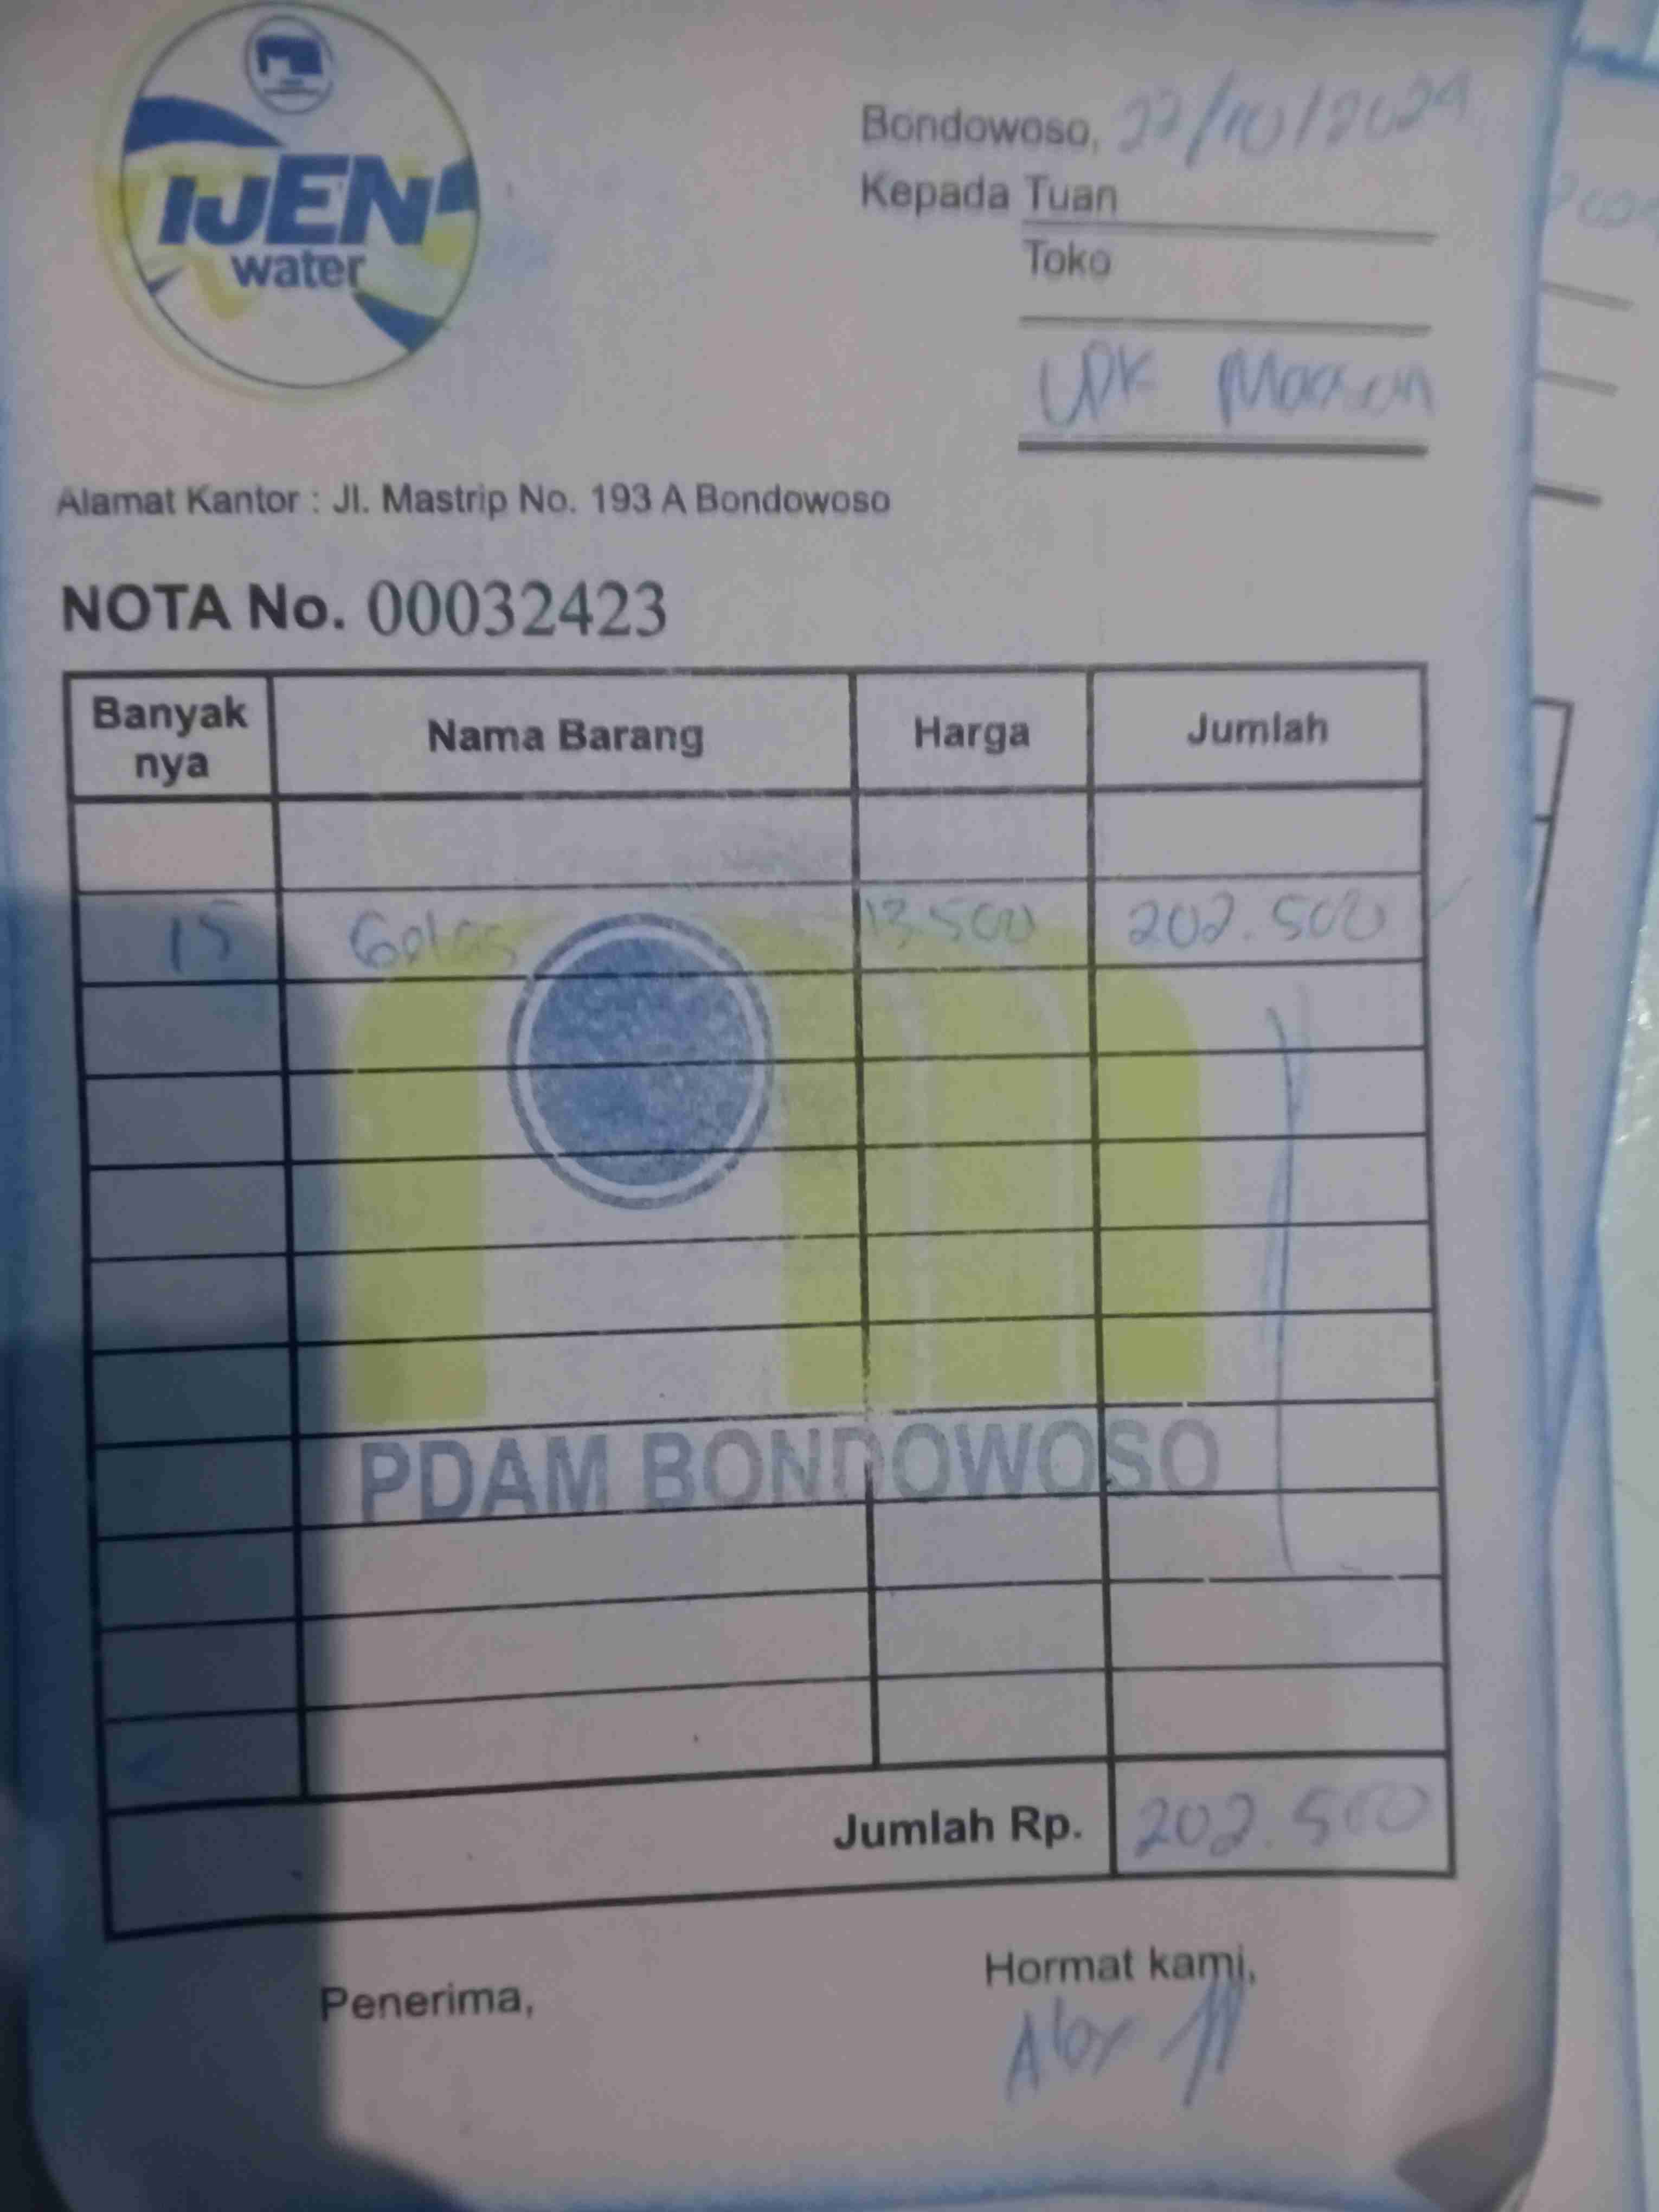 IJEN
water
Bondowoso, 22/10/2024
Kepada Tuan
Toko
UPK
Alamat Kantor : Jl. Mastrip No. 193 A Bondowoso
NOTA No. 00032423
Banyak nya Nama Barang Harga Jumlah
15 Gelas 13.500 202.500
PDAM BONDOWOSO
Jumlah Rp. 202.500
Penerima,
Hormat kami,
Alex